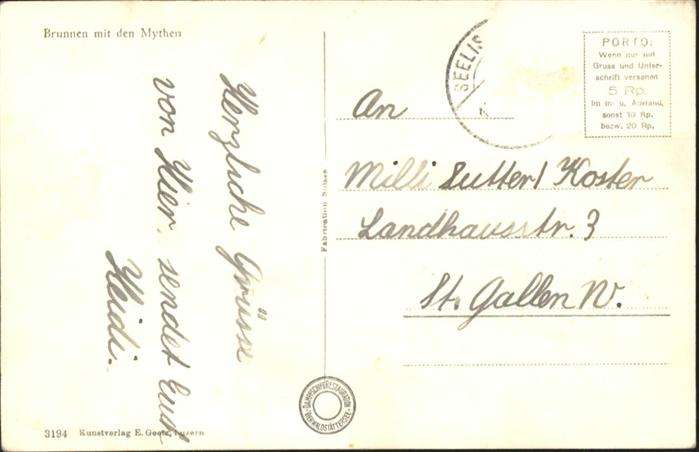 Brunnen mit den Mythen
Herzliche Grüsse
von Hier. sendet Euch
Heidi.
3194 Kunstverlag E. Goetz, Luzern
Fabrication Suisse
DAMPFSCHIFFRESTAURATION
VIERWALDSTÄTTERSEE
SEELIS
PORTO:
Wenn nur mit
Gruss und Unter-
schrift versehen
5 Rp.
im In- u. Ausland,
sonst 10 Rp.
bezw. 20 Rp.
An
Milli Sutter / Koster
Landhausstr. 3
St. Gallen W.